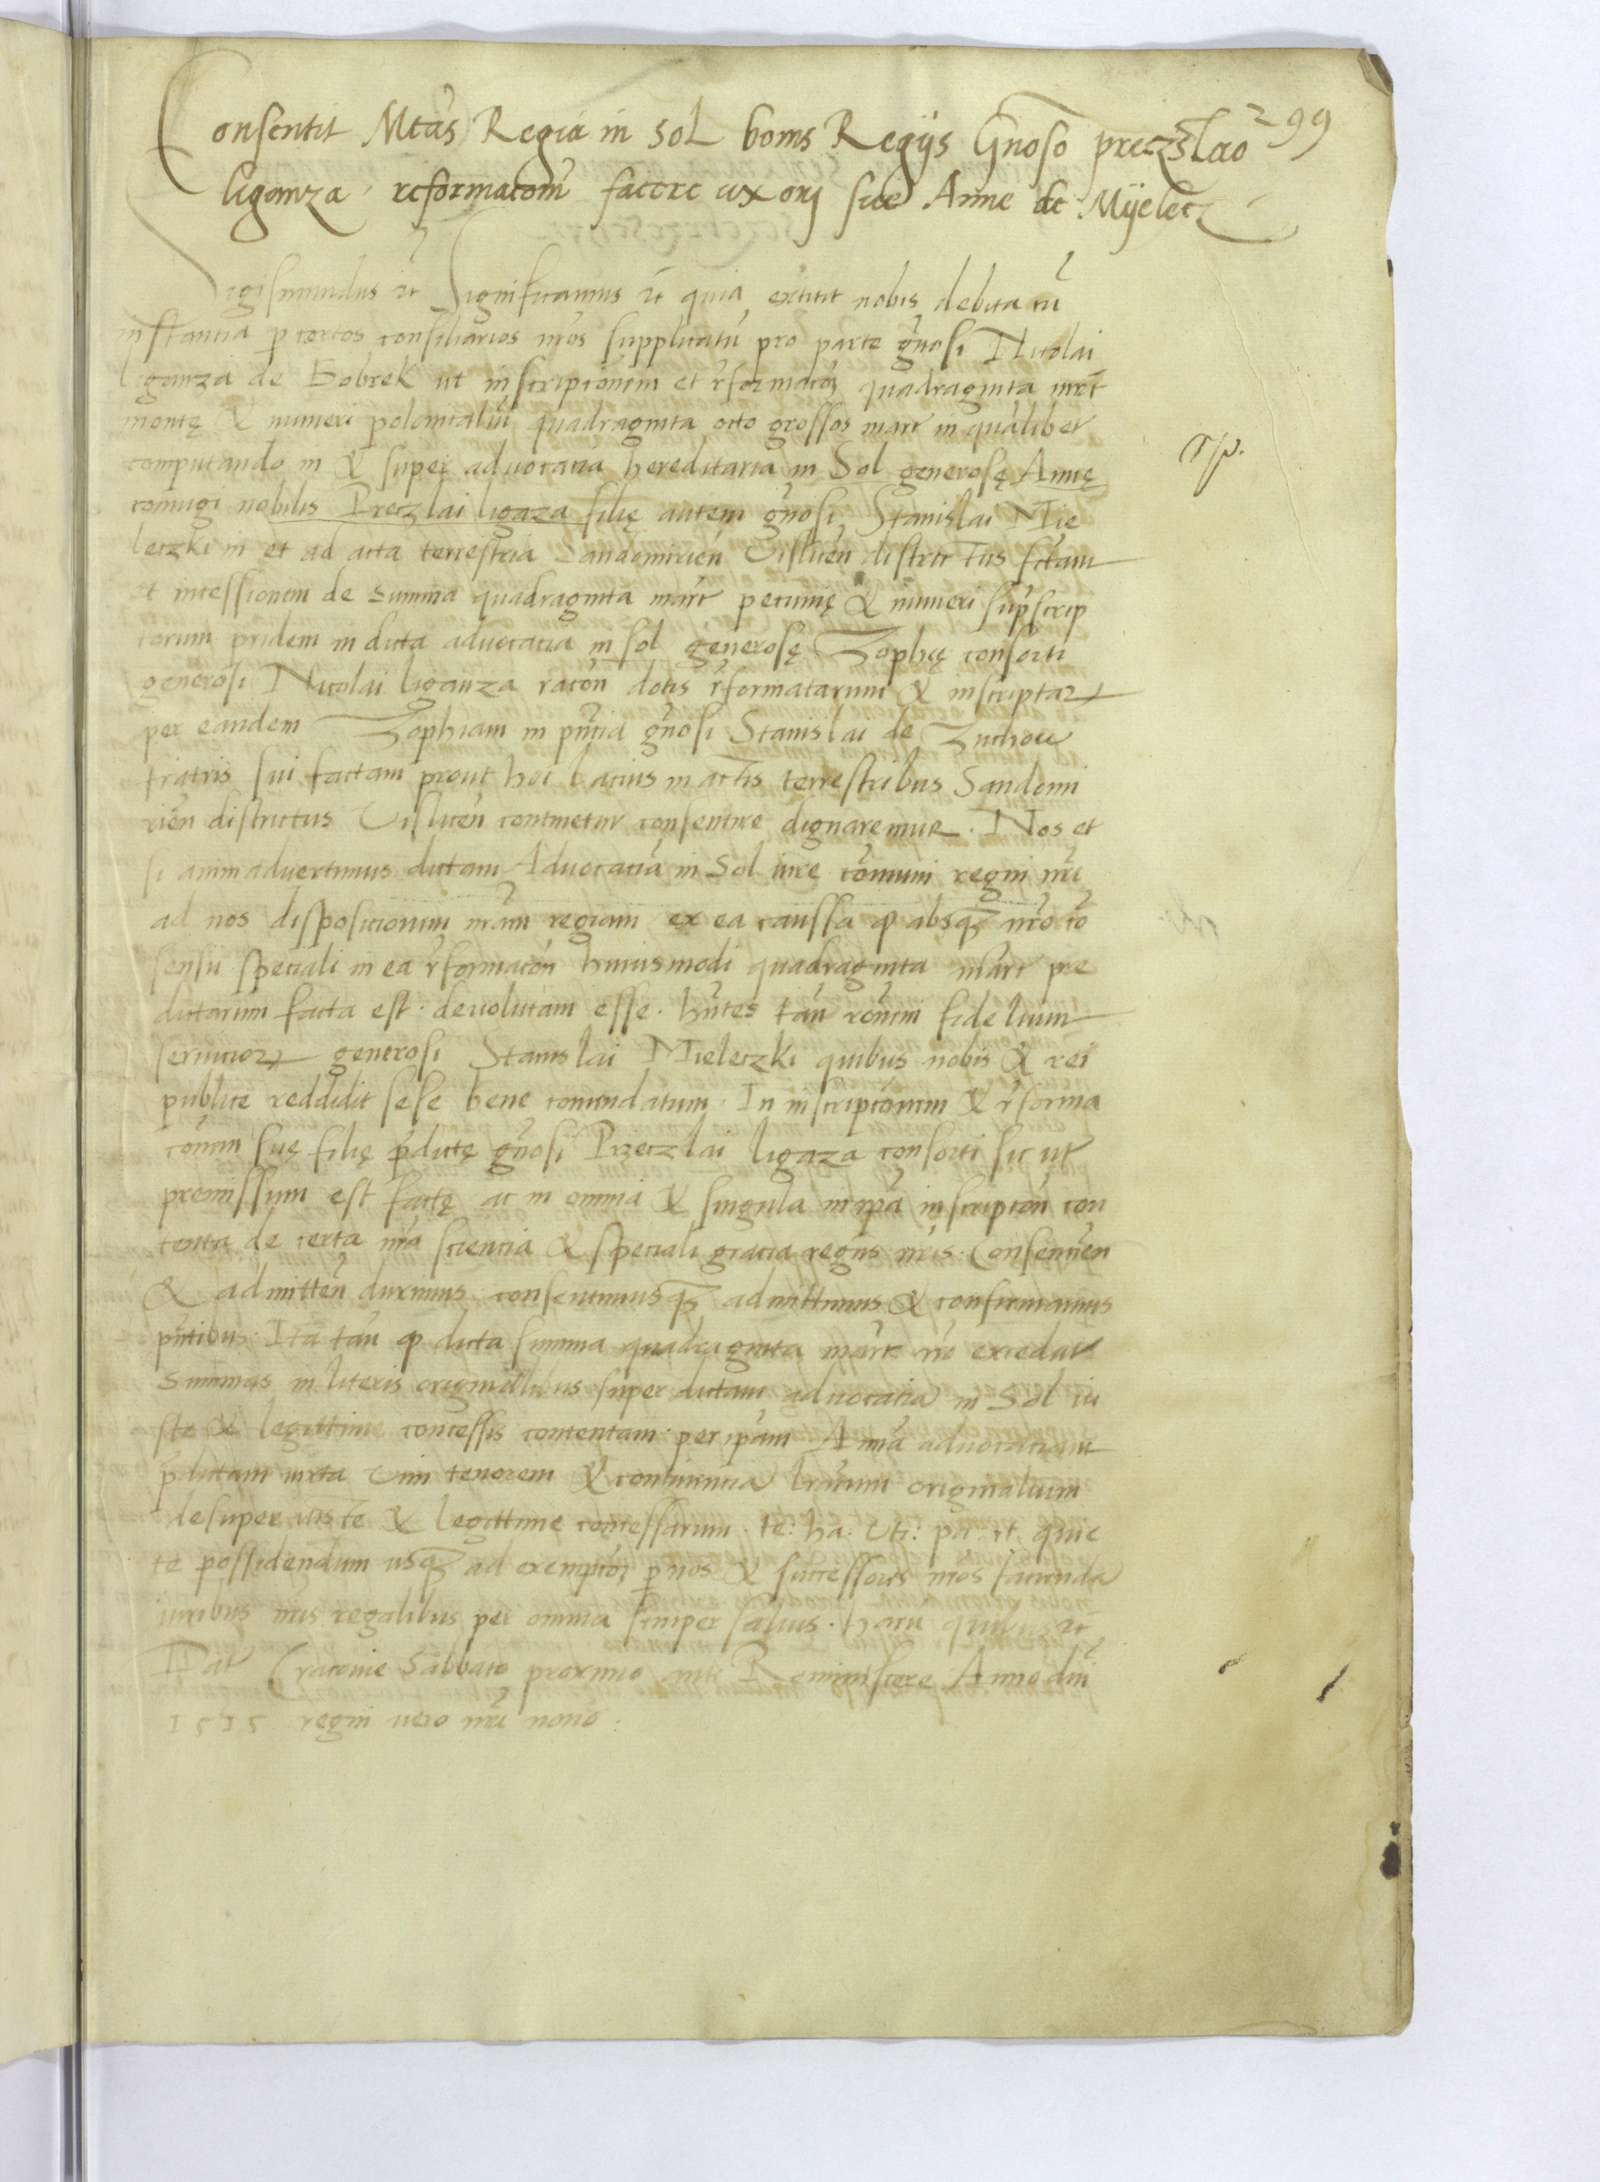 299
Consentit Mtas Regia in Sol bonis Regijs Gnoso preczslao
liganza reformacom facere uxorj sue Anne de Mijelecz
Sigismundus etc Significamus etc quia extitit nobis debita cū
instantia p certos consiliarios nros supplicatū pro parte gnosi Nicolai
liganza de Bobrek ut inscriptionem et rformacōn quadraginta mrc
monete & numeri polonicaliū quadraginta octo grossos marc in qualibet
computando in & super advocatia hereditaria in Sol generosę Annę
coniugi nobilis Preczlai ligaza filię autem gnosi Stanislai Mie
leczki in et ad acta terrestria Sandomirien Vislicen districtus fctam
et incessionem de summa quadraginta marc pecunię & numeri supscrip
torum pridem in dicta advocatia in sol generosę Zophię consorti
generosi Nicolai liganza racōn dotis rformatarum & inscriptar
per eandem Zophiam in pntia gnosi Stanislai de Zuchow
fratris sui factam prout hoc lacius in actis terrestribus Sandomi
rien districtus Vislicen continetur consentire dignaremur. Nos et
si animadvertimus dictam Advocatiā in Sol iure cōmuni regni nri
ad nos disposicionem nram regiam ex ea caussa q absq nro cō
sensu speciali in ea rformacōn huiusmodi quadraginta marc pre
dictarum facta est. devolutam esse. hntes tan rōnem fidelium
servicior generosi Stanislai Mieleczki quibus nobis & rei
publice reddidit sese bene comendatum. In inscripcōnem & rforma
cōnem suę filię pdictę gnosi Preczlai ligaza consorti sic ut
premissum est factę ac in omnia & singula in ipa inscripcōn con
tenta de certa nra sciencia & speciali gracia regijs nris. Consencien
& admitten duximus consentimusq admittimus & confirmamus
pntibus. Ita tan q dicta summa quadraginta marc nō excedat
Summas in literis originalibus super dictam advocatia in Sol iu
ste & legittime concessis contentam. per ipam Annā advocatiam
pdictam iuxta vim tenorem & continentia lrarum originalium
desuper iuste & legittime concessarum. te: ha: uti: pa: et quie
te possidendum usq ad exempcōn p nos & successores nros facienda
iuribus nris regalibus per omnia semper salvis. harū quibus etc
Dat Cracovie Sabbato proximo ante Reminiscere Anno dni
1515 regni vero nri nono.